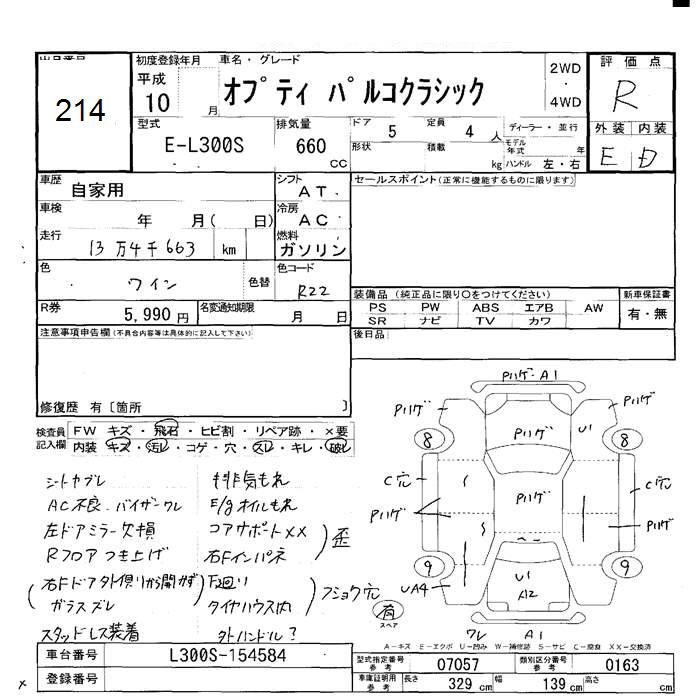 出品番号
214
初度登録年月
平成
10 月
車名・グレード
オプティ パルコクラシック
2WD
・
4WD
評価点
R
型式
E-L300S
排気量
660
CC
ドア
5
定員
4 人
形状
積載
kg
ディーラー・並行
モデル年式 年
ハンドル 左・右
外装 内装
E D
車歴
自家用
シフト
AT
セールスポイント(正常に機能するものに限ります)
車検
年 月( 日)
冷房
AC
走行
13万4千663 km
燃料
ガソリン
色
ワイン
色替
色コード
R22
装備品(純正品に限り○をつけてください)
新車保証書
PS PW ABS エアB AW
SR ナビ TV カワ
有・無
R券
5,990円
名変通知期限
月 日
後日品
注意事項申告欄(不具合内容等は具体的に記入して下さい)
修復歴 有〔箇所 〕
検査員記入欄
FW キズ・飛石・ヒビ割・リペア跡・×要
内装 キズ・汚レ・コゲ・穴・スレ・キレ・破レ
シートヤブレ
AC不良.バイザーワレ
左ドアミラー欠損
Rフロアつき上げ
(右Fドア外側から開かず)
ガラスズレ
スタッドレス装着
排気もれ
E/gオイルもれ
コアサポートXX
右Fインパネ
歪
下廻り
タイヤハウス内
フショク穴
外ハンドル?
Pハゲ・A1
Pハゲ
Pハゲ
Pハゲ
U1
8
8
C穴
C穴
Pハゲ
Pハゲ
Pハゲ
9
9
UA4
U1
A2
有
スペア
ワレ A1
A-キズ E-エクボ U-凹み W-補修跡 S-サビ C-腐食 XX-交換済
車台番号
L300S-154584
型式指定番号 参考
07057
類別区分番号 参考
0163
登録番号
車庫証明用 参考
長さ 329 cm
幅 139 cm
高さ cm